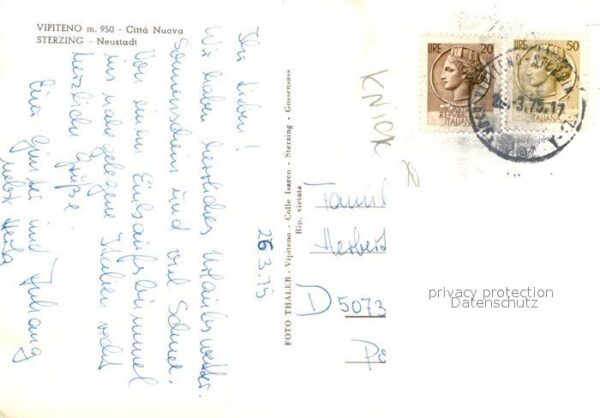 VIPITENO m. 950 - Città Nuova
STERZING - Neustadt
Ihr Lieben!
Wir haben herrliches Urlaubswetter.
Sonnenschein und viel Schnee.
Von einem Einkaufsbummel
ins nahe gelegene Italien recht
herzliche Grüße
Eure Günter und Anhang
nebst
26.3.75
FOTO THALER - Vipiteno - Colle Isarco - Sterzing - Gossensass
Rip. vietata
KNICK
LIRE 20
REPUBBLICA
ITALIANA
LIRE 50
ITALIANA
VIPITENO
.3.75.17
Famil
Herberd
D 5073
privacy protection
Datenschutz